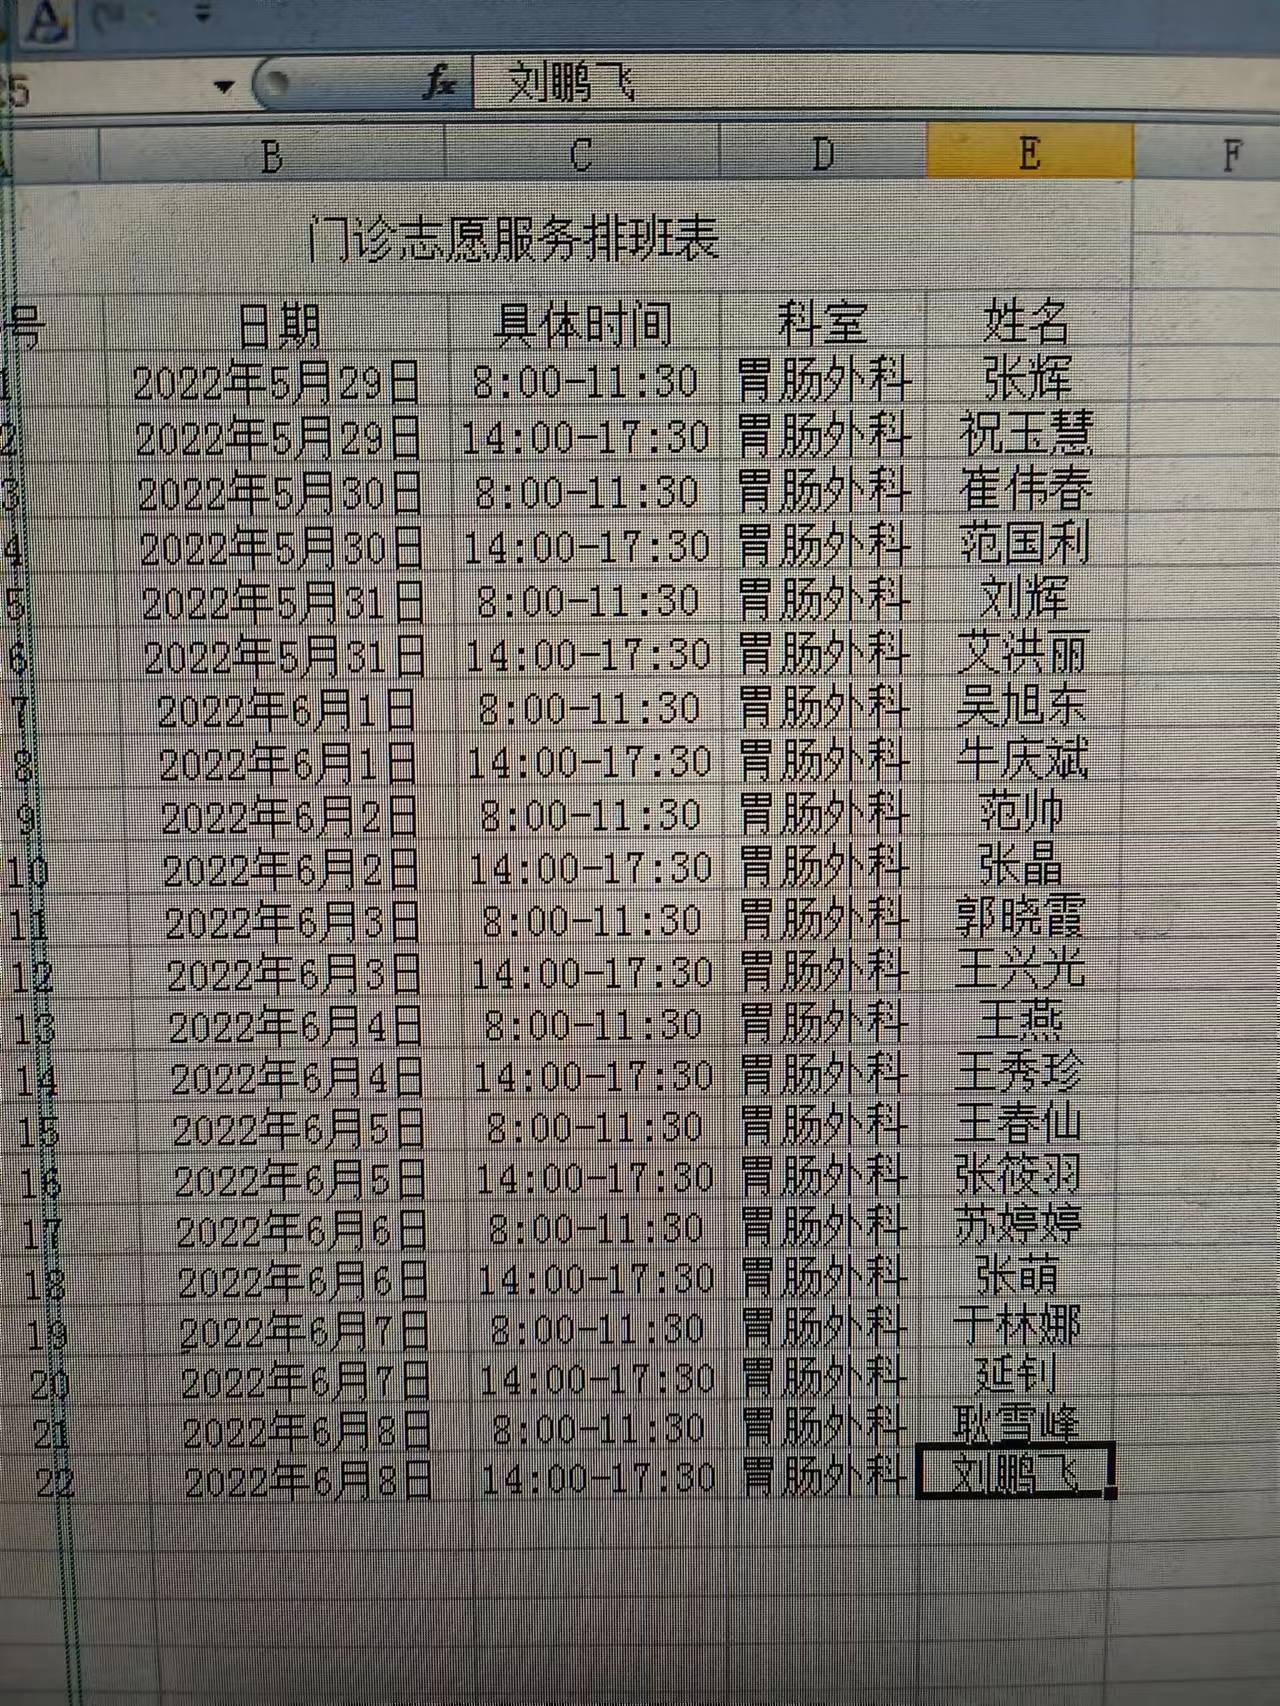 5 fx 刘鹏飞
B C D E F
门诊志愿服务排班表
号 日期 具体时间 科室 姓名
1 2022年5月29日 8:00-11:30 胃肠外科 张辉
2 2022年5月29日 14:00-17:30 胃肠外科 祝玉慧
3 2022年5月30日 8:00-11:30 胃肠外科 崔伟春
4 2022年5月30日 14:00-17:30 胃肠外科 范国利
5 2022年5月31日 8:00-11:30 胃肠外科 刘辉
6 2022年5月31日 14:00-17:30 胃肠外科 艾洪丽
7 2022年6月1日 8:00-11:30 胃肠外科 吴旭东
8 2022年6月1日 14:00-17:30 胃肠外科 牛庆斌
9 2022年6月2日 8:00-11:30 胃肠外科 范帅
10 2022年6月2日 14:00-17:30 胃肠外科 张晶
11 2022年6月3日 8:00-11:30 胃肠外科 郭晓霞
12 2022年6月3日 14:00-17:30 胃肠外科 王兴光
13 2022年6月4日 8:00-11:30 胃肠外科 王燕
14 2022年6月4日 14:00-17:30 胃肠外科 王秀珍
15 2022年6月5日 8:00-11:30 胃肠外科 王春仙
16 2022年6月5日 14:00-17:30 胃肠外科 张筱羽
17 2022年6月6日 8:00-11:30 胃肠外科 苏婷婷
18 2022年6月6日 14:00-17:30 胃肠外科 张萌
19 2022年6月7日 8:00-11:30 胃肠外科 于林娜
20 2022年6月7日 14:00-17:30 胃肠外科 延钊
21 2022年6月8日 8:00-11:30 胃肠外科 耿雪峰
22 2022年6月8日 14:00-17:30 胃肠外科 刘鹏飞